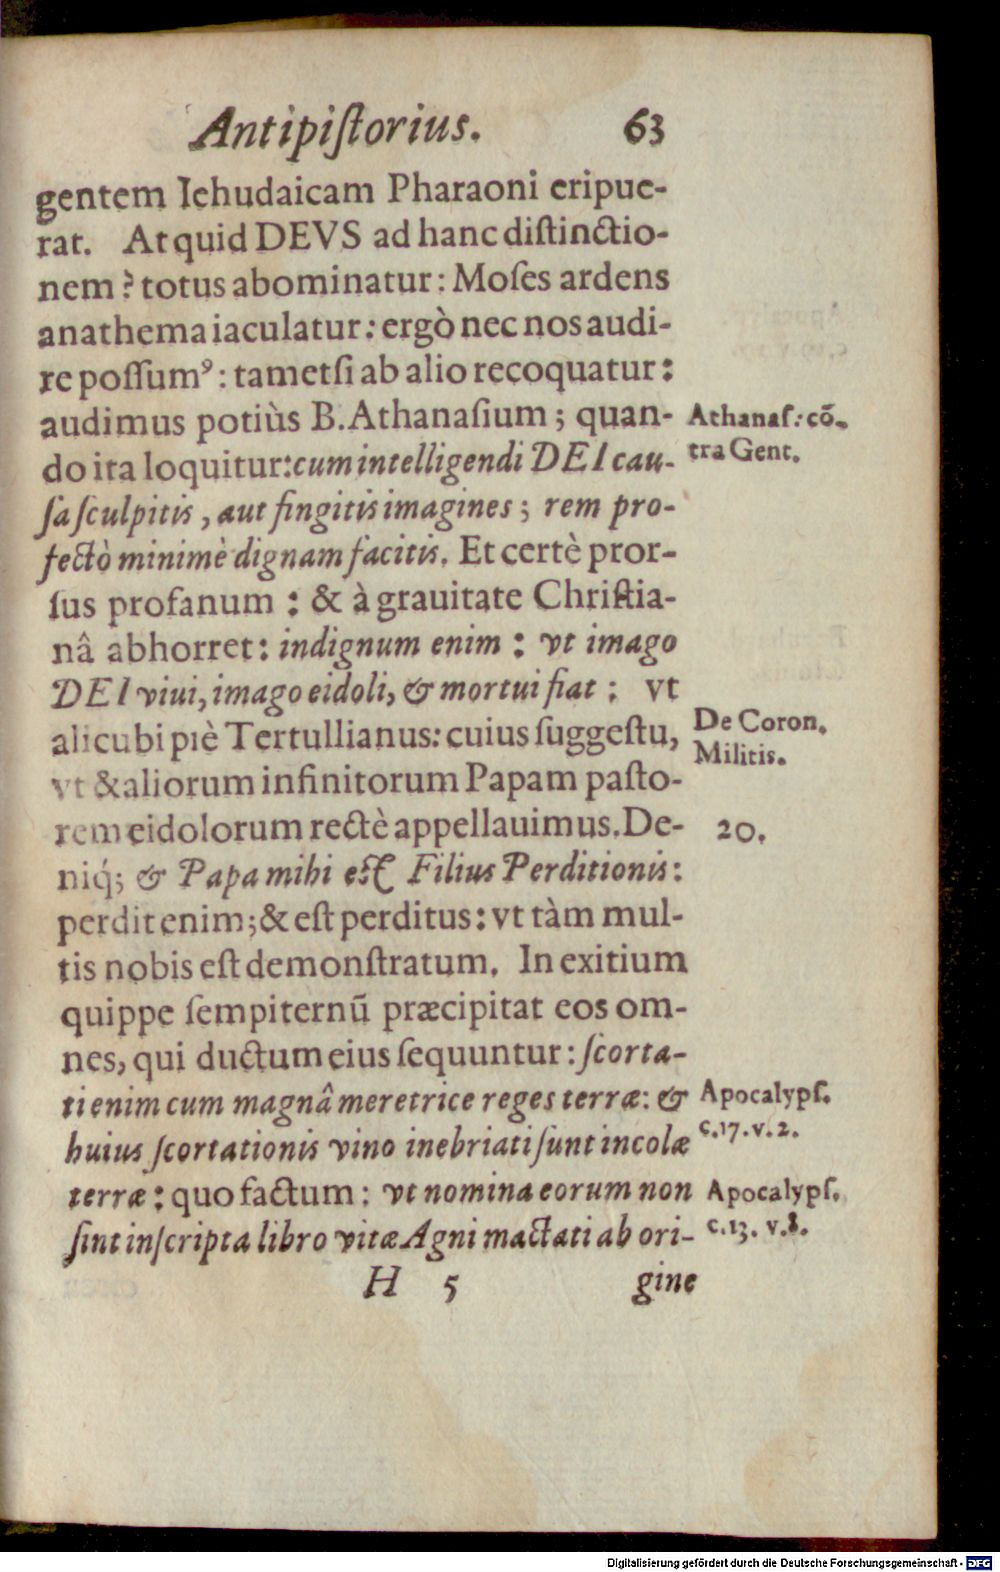 Antipiſtorius. 63
gentem Iehudaicam Pharaoni eripue-
rat. At quid DEVS ad hanc diſtinctio-
nem? totus abominatur: Moſes ardens
anathema iaculatur: ergò nec nos audi-
re poſſumꝰ: tametſi ab alio recoquatur:
audimus potiùs B. Athanaſium; quan-
Athanaſ: cō-
do ita loquitur: cum intelligendi DEI cau-
tra Gent.
ſa ſculpitis, aut fingitis imagines; rem pro-
fectò minimè dignam facitis. Et certè pror-
ſus profanum: & à grauitate Chriſtia-
nâ abhorret: indignum enim: vt imago
DEI viui, imago eidoli, & mortui fiat: vt
alicubi piè Tertullianus: cuius ſuggeſtu,
De Coron.
Militis.
vt & aliorum infinitorum Papam paſto-
rem eidolorum rectè appellauimus. De-
20.
niq́; & Papa mihi eſt Filius Perditionis:
perdit enim; & eſt perditus: vt tàm mul-
tis nobis eſt demonſtratum. In exitium
quippe ſempiternū præcipitat eos om-
nes, qui ductum eius ſequuntur: ſcorta-
ti enim cum magnâ meretrice reges terræ: &
Apocalypſ.
c.17. v. 2.
huius ſcortationis vino inebriati ſunt incolæ
terræ: quo factum: vt nomina eorum non
Apocalypſ.
c.13. v.8.
ſint inſcripta libro vitæ Agni mactati ab ori-
H 5 gine
Digitalisierung gefördert durch die Deutsche Forschungsgemeinschaft - DFG